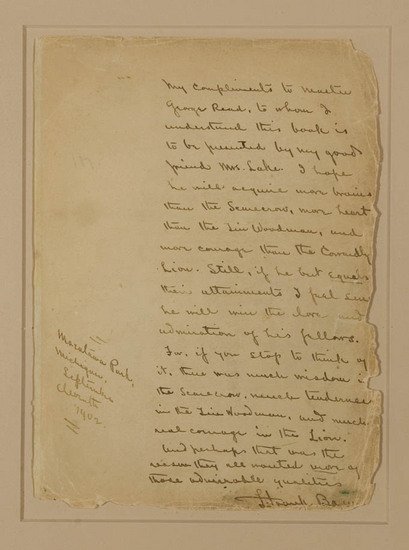 My compliments to Master
George Read, to whom I
understand this book is
to be presented by my good
friend Mrs. Lake. I hope
he will acquire more brains
than the Scarecrow, more heart
than the Tin Woodman, and
more courage than the Cowardly
Lion. Still, if he but equals
their attainments I feel sure
he will win the love and
admiration of his fellows.
For, if you stop to think of
it, there was much wisdom in
the Scarecrow, much tenderness
in the Tin Woodman, and much
real courage in the Lion.
And perhaps that was the
reason they all wanted more of
those admirable qualities
L. Frank Baum
Macatawa Park,
Michigan,
September
1902